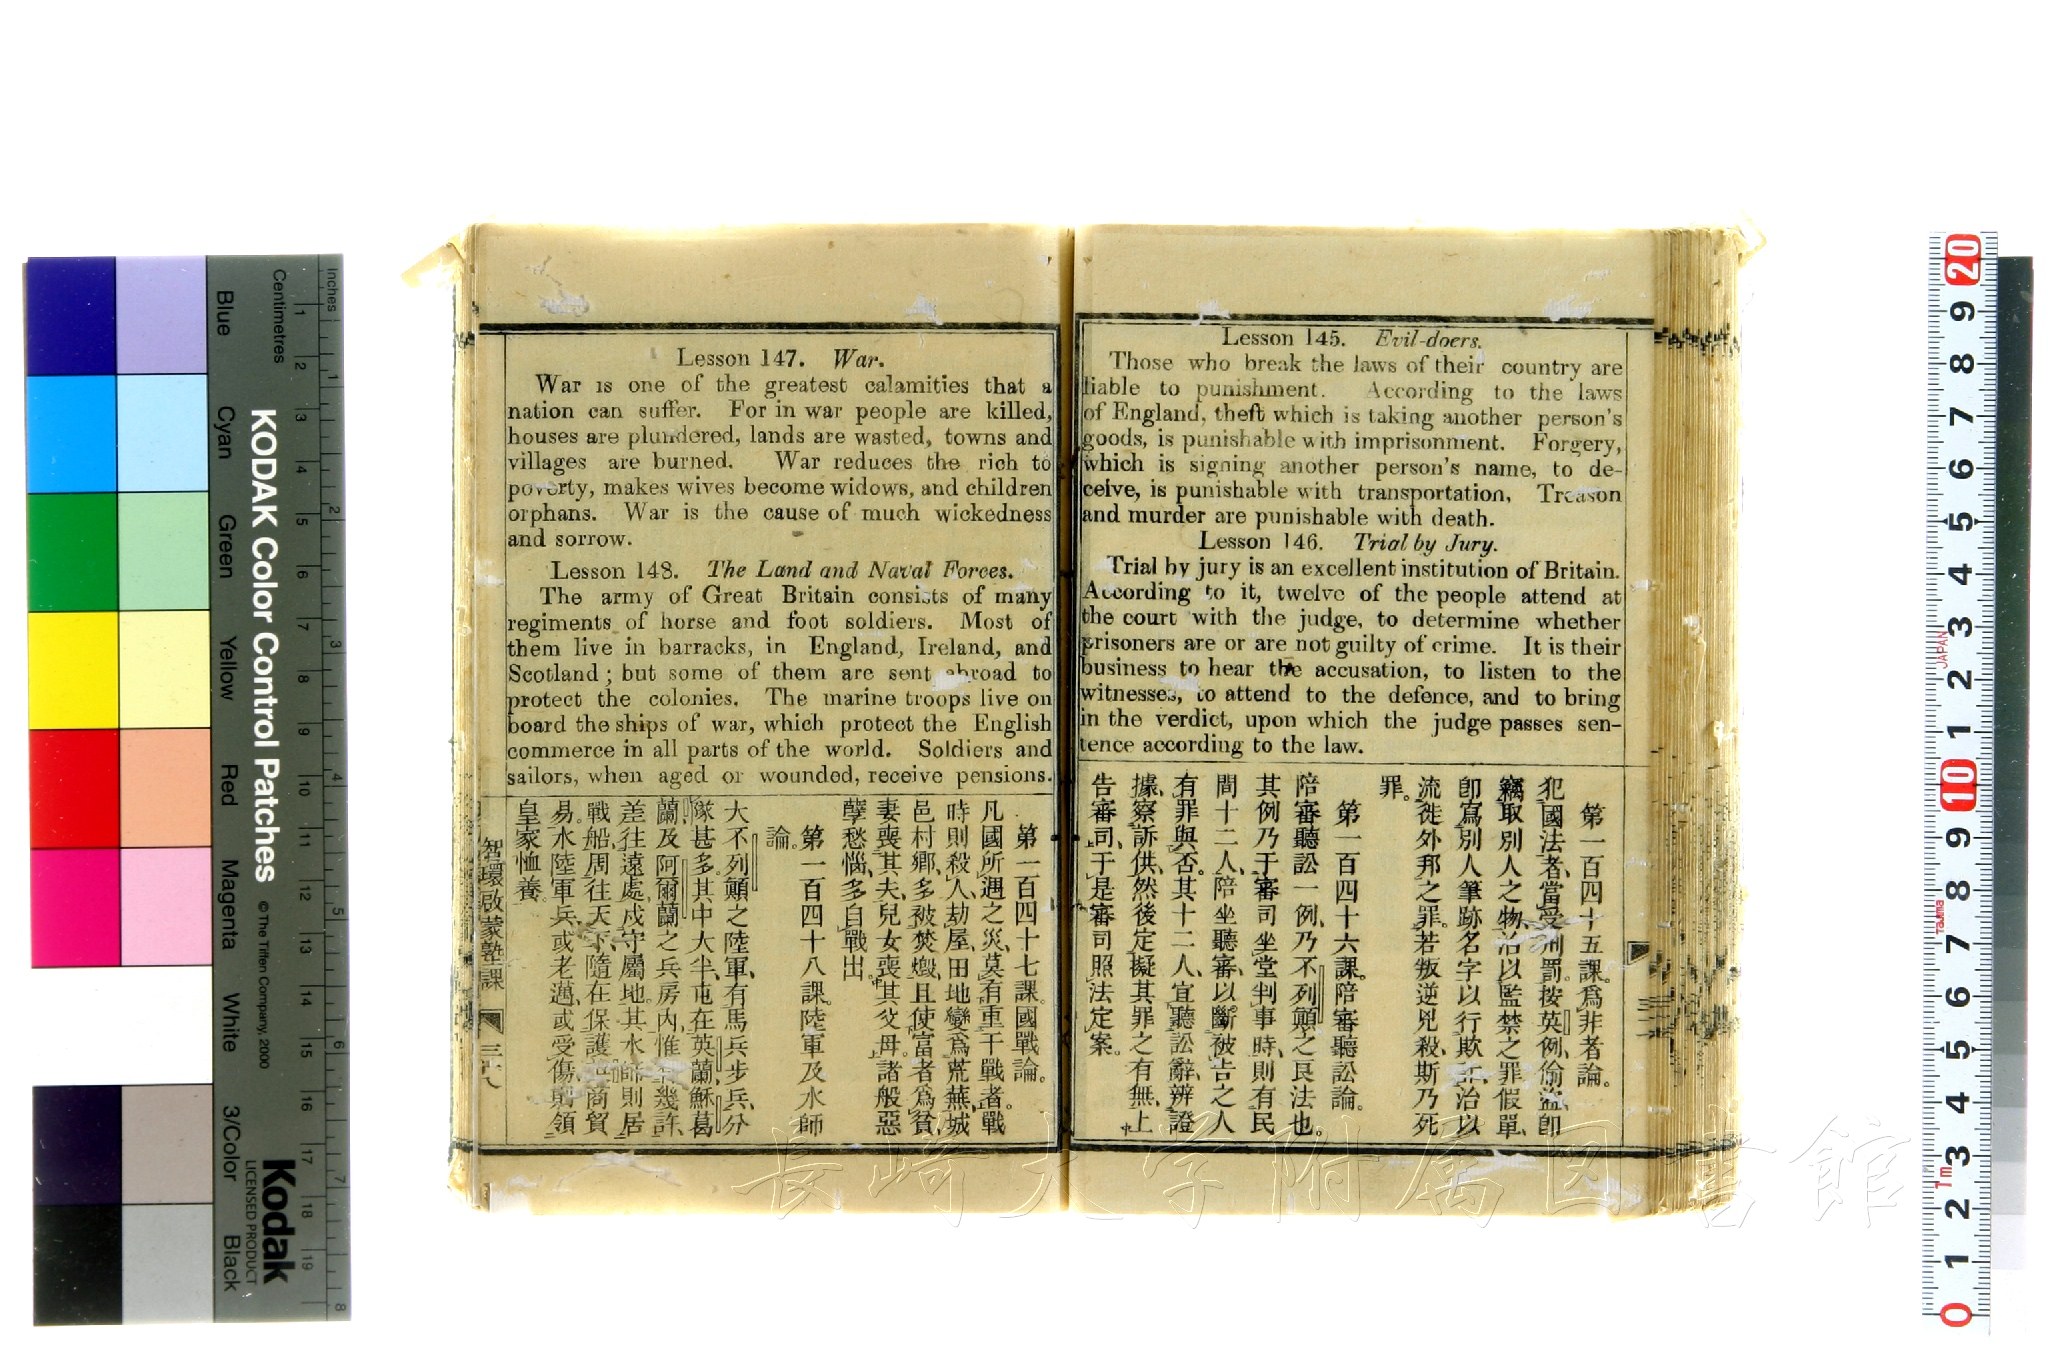 Lesson 145. Evil-doers.
Those who break the laws of their country are
liable to punishment. According to the laws
of England, theft which is taking another person's
goods, is punishable with imprisonment. Forgery,
which is signing another person's name, to de-
ceive, is punishable with transportation, Treason
and murder are punishable with death.
Lesson 146. Trial by Jury.
Trial by jury is an excellent institution of Britain.
According to it, twelve of the people attend at
the court with the judge, to determine whether
prisoners are or are not guilty of crime. It is their
business to hear the accusation, to listen to the
witnesses, to attend to the defence, and to bring
in the verdict, upon which the judge passes sen-
tence according to the law.
第一百四十五課。爲非者論。
犯國法者、當受刑罰。按英例、偷盜、卽
竊取別人之物、治以監禁之罪、假單、
卽寫別人筆跡名字以行欺、治以
流徙外邦之罪。若叛逆兇殺、斯乃死
罪。
第一百四十六課。陪審聽訟論。
陪審聽訟一例、乃不列顚之良法也。
其例乃于審司坐堂判事時、則有民
間十二人、陪坐聽審、以斷被告之人
有罪與否。其十二人、宜聽訟辭、辨證
據、察訴供、然後定擬其罪之有無、上
告審司、于是審司照法定案。
Lesson 147. War.
War is one of the greatest calamities that a
nation can suffer. For in war people are killed,
houses are plundered, lands are wasted, towns and
villages are burned. War reduces the rich to
poverty, makes wives become widows, and children
orphans. War is the cause of much wickedness
and sorrow.
Lesson 148. The Land and Naval Forces.
The army of Great Britain consists of many
regiments of horse and foot soldiers. Most of
them live in barracks, in England, Ireland, and
Scotland; but some of them are sent abroad to
protect the colonies. The marine troops live on
board the ships of war, which protect the English
commerce in all parts of the world. Soldiers and
sailors, when aged or wounded, receive pensions.
第一百四十七課。國戰論。
凡國所遇之災、莫有重于戰者。戰
時則殺人、劫屋、田地變爲荒蕪、城
邑村鄉、多被焚燬、且使富者爲貧、
妻喪其夫、兒女喪其父母。諸般惡
孽愁惱、多自戰出。
第一百四十八課。陸軍及水師
論。
大不列顚之陸軍、有馬兵步兵、分
隊甚多。其中大半、屯在英蘭、穌葛
蘭、及阿爾蘭之兵房內、惟幾許、
差往遠處、戍守屬地。其水師則居
戰船、周往天下、隨在保護商貿
易。水陸軍兵、或老邁、或受傷、則領
皇家恤養。
智環啟蒙塾課
三十八
Inches
Centimetres
1 2 3 4 5 6 7 8 9 10 11 12 13 14 15 16 17 18 19
1 2 3 4 5 6 7 8
Blue
Cyan
Green
Yellow
Red
Magenta
White
3/Color
Black
KODAK Color Control Patches
© The Tiffen Company, 2000
Kodak
LICENSED PRODUCT
20 9 8 7 6 5 4 3 2 1 10 9 8 7 6 5 4 3 2 1 0
JAPAN
Tajima
1m
長崎大学附属図書館